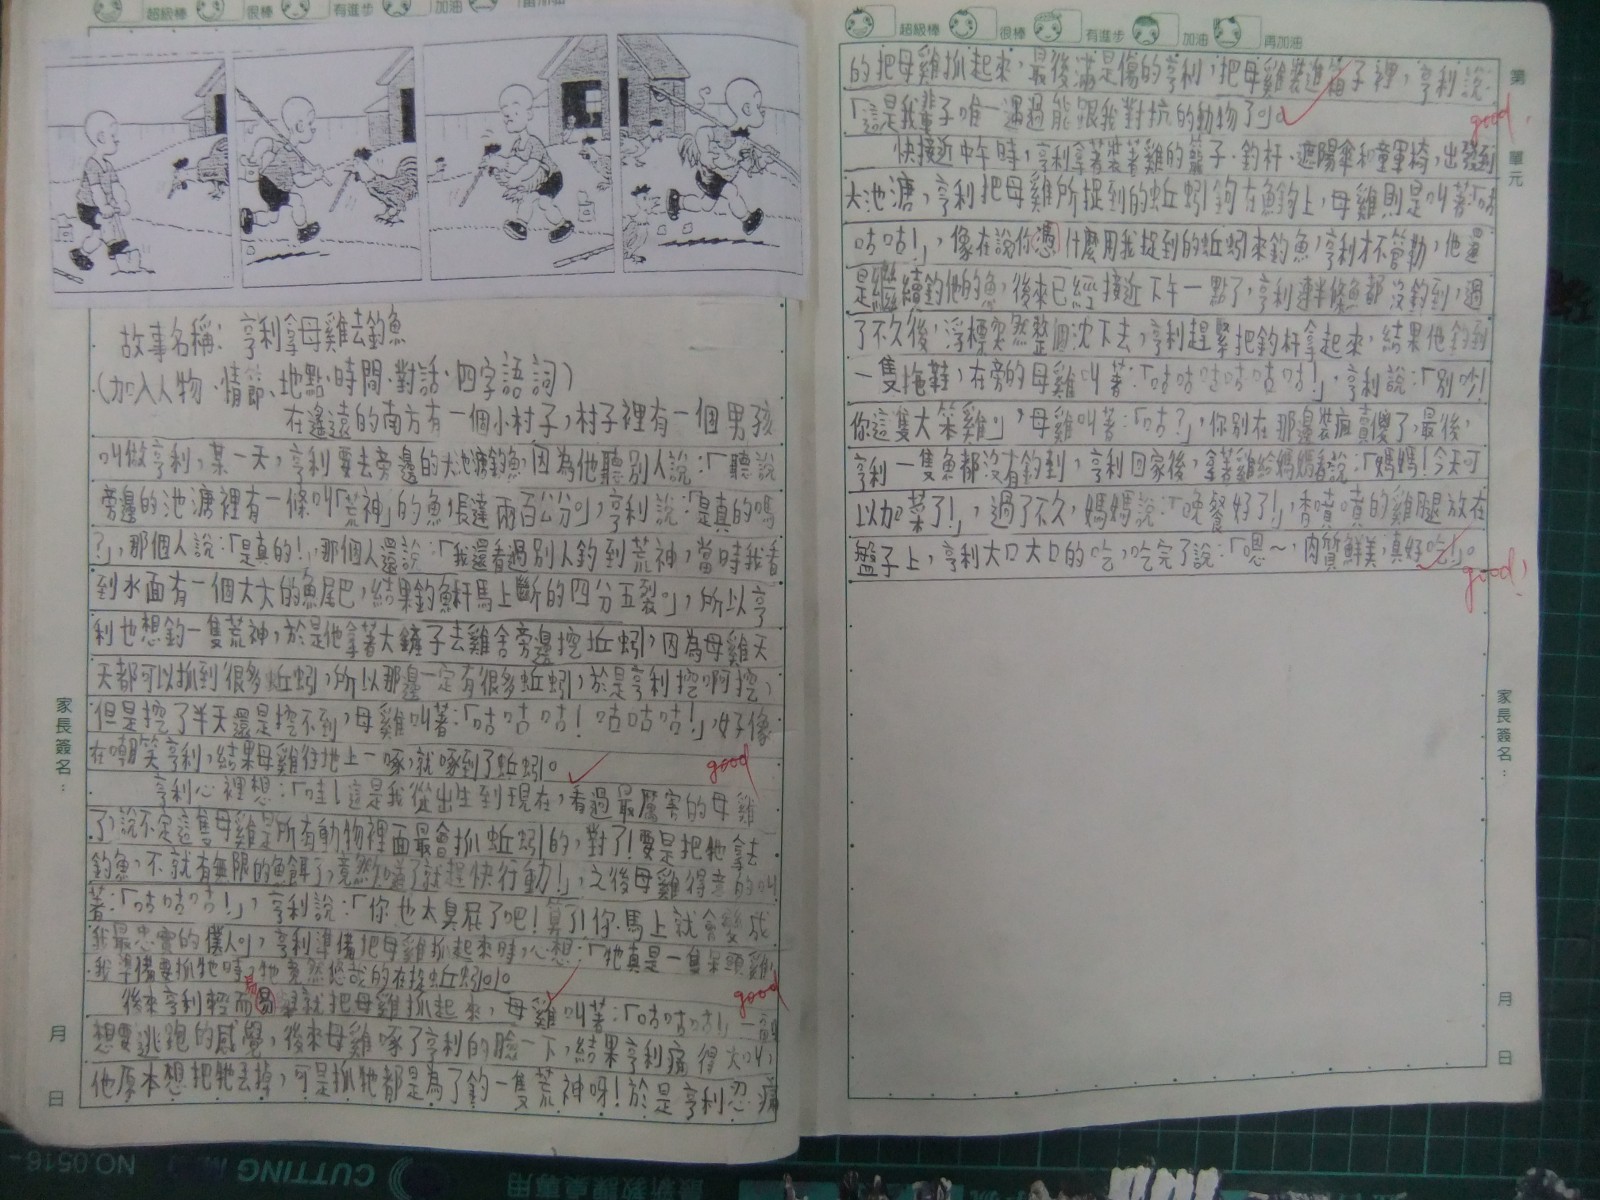 超級棒 很棒 有進步 加油 再加油
故事名稱：亨利拿母雞去釣魚
(加入人物、情節、地點、時間、對話、四字語詞)
在遙遠的南方有一個小村子，村子裡有一個男孩
叫做亨利，某一天，亨利要去旁邊的大池塘釣魚，因為他聽別人說：「聽說
旁邊的池塘裡有一條叫「荒神」的魚，長達兩百公分。」，亨利說：「是真的嗎
？」，那個人說：「是真的！，那個人還說：「我還看過別人釣到荒神，當時我看
到水面有一個大大的魚尾巴，結果釣魚杆馬上斷的四分五裂。」，所以亨
利也想釣一隻荒神，於是他拿著大鏟子去雞舍旁邊挖蚯蚓，因為母雞天
天都可以抓到很多蚯蚓，所以那邊一定有很多蚯蚓，於是亨利挖啊挖，
但是挖了半天還是挖不到，母雞叫著：「咕咕咕！咕咕咕！」，好像
在嘲笑亨利，結果母雞往地上一啄，就啄到了蚯蚓。
good
亨利心裡想：「哇！這是我從出生到現在，看過最厲害的母雞
了，說不定這隻母雞是所有動物裡面最會抓蚯蚓的，對了！要是把牠拿去
釣魚，不就有無限的魚餌了，竟然知道了就趕快行動！」，之後母雞得意的叫
著：「咕咕咕！」，亨利說：「你也太臭屁了吧！算了！你馬上就會變成
我最忠實的僕人。」，亨利準備把母雞抓起來時，心想：「牠真是一隻呆頭雞，
我準備要抓牠時，牠竟然悠哉的在捉蚯蚓。」。
good
後來亨利輕而易舉就把母雞抓起來，母雞叫著：「咕咕咕！」一副
想要逃跑的感覺，後來母雞啄了亨利的臉一下，結果亨利痛得大叫，
他原本想把牠丟掉，可是抓牠都是為了釣一隻荒神呀！於是亨利忍痛
家長簽名：
月
日
超級棒 很棒 有進步 加油 再加油
第
單元
的把母雞抓起來，最後滿是傷的亨利，把母雞裝進箱子裡，亨利說：
「這是我輩子唯一遇過能跟我對抗的動物了」。
good
快接近中午時，亨利拿著裝著雞的籠子、釣杆、遮陽傘和童軍椅，出發到
大池塘，亨利把母雞所捉到的蚯蚓鉤在魚鉤上，母雞則是叫著「咕
咕咕！」，像在說你憑什麼用我捉到的蚯蚓來釣魚，亨利才不管勒，他還
是繼續釣他的魚，後來已經接近下午一點了，亨利連半條魚都沒釣到，過
了不久後，浮標突然整個沈下去，亨利趕緊把釣杆拿起來，結果他釣到
一隻拖鞋，在旁的母雞叫著：「咕咕哇咕咕咕！」，亨利說：「別吵！
你這隻大笨雞」，母雞叫著：「咕？」，你別在那邊裝瘋賣傻了，最後，
亨利一隻魚都沒有釣到，亨利回家後，拿著雞給媽媽看說：「媽媽！今天可
以加菜了！」，過了不久，媽媽說：「晚餐好了！」，香噴噴的雞腿放在
盤子上，亨利大口大口的吃，吃完了說：「嗯～，肉質鮮美，真好吃！」。
good!
家長簽名：
月
日
NO.0516-
CUTTING
最新教課桌專用